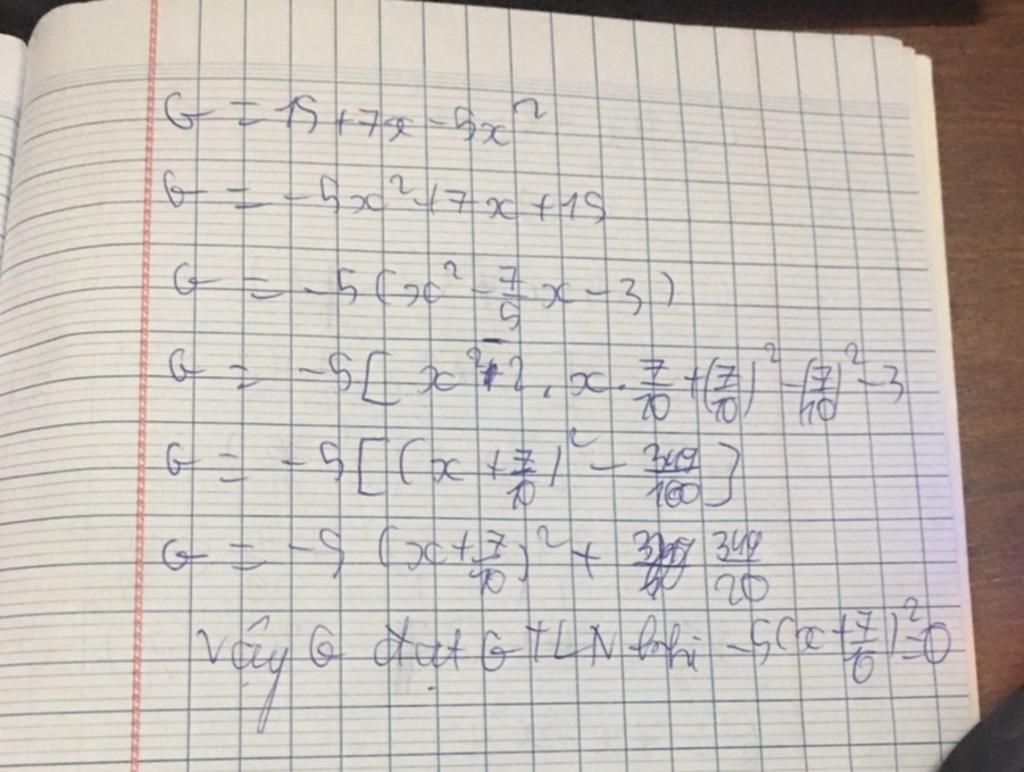 G = 15 + 7x - 5x²
G = -5x² + 7x + 15
G = -5 (x² - 7/5 x - 3)
G = -5 [ x² - 2 . x . 7/10 + (7/10)² - (7/10)² - 3
G = -5 [ (x + 7/10)² - 349/100 ]
G = -5 (x + 7/10)² + 349/20
Vậy G đạt GTLN khi -5(x + 7/10)² = 0